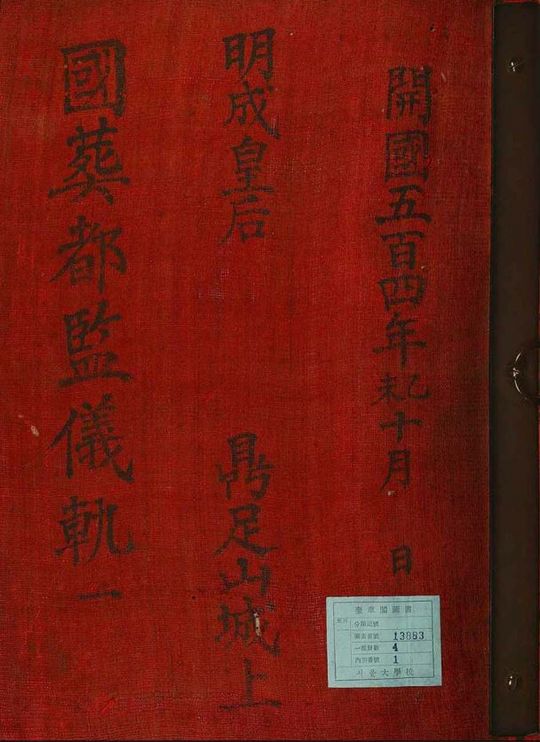 開國五百四年乙未十月 日
明成皇后
鼎足山城上
國葬都監儀軌一
奎章閣圖書
分類記號
圖書番號 13883
一部冊數 4
內冊番號 1
서울大學校